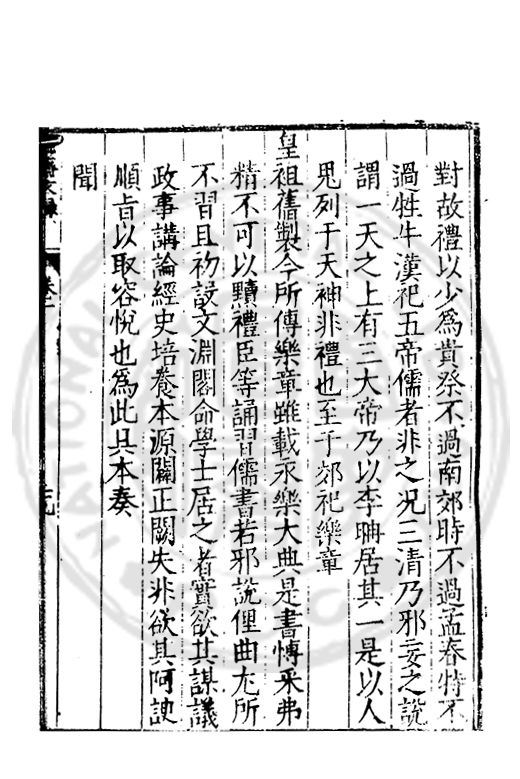 對故禮以少爲貴祭不過南郊時不過孟春特不
過牲牛漢祀五帝儒者非之况三清乃邪妄之說
謂一天之上有三大帝乃以李聃居其一是以人
鬼列于天神非禮也至于郊祀樂章
皇祖舊製今所傳樂章雖載永樂大典是書愽采弗
精不可以黷禮臣等誦習儒書若邪說俚曲尤所
不習且初設文淵閣命學士居之者實欲其謀議
政事講論經史培養本源闢正闕失非欲其阿諛
順旨以取容悅也爲此具本奏
聞
文錄
卷二